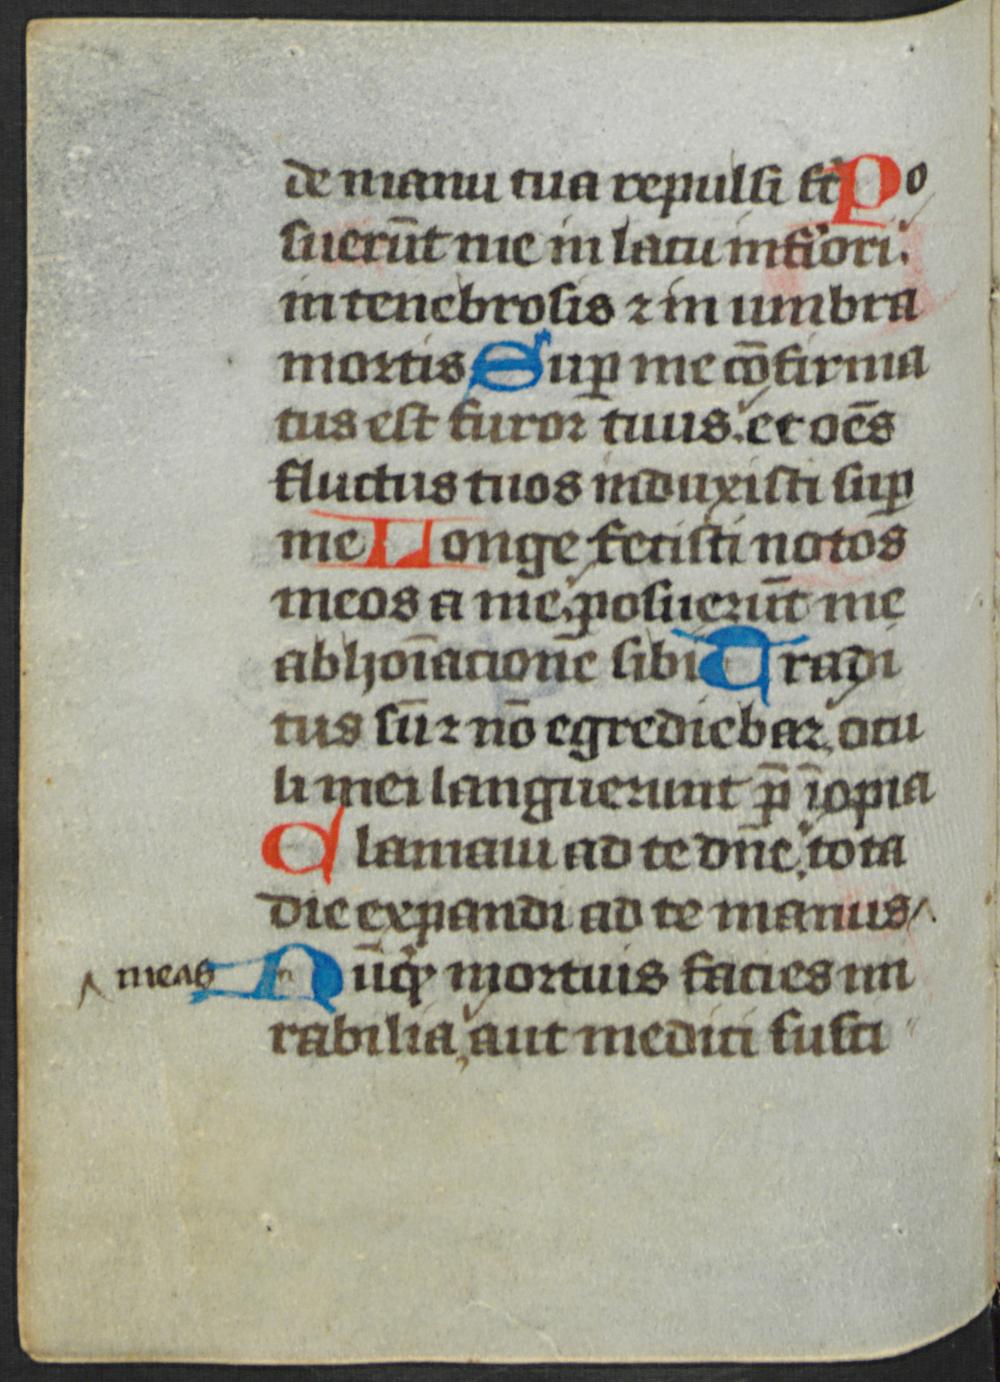 de manu tua repulsi st̄ Po
suerūt me in lacu infi'ori:
in tenebrosis ⁊ in umbra
mortis Suꝑ me cōfirma
tus est furor tuus. et oēs
fluctus tuos induxisti suꝑ
me Longe fecisti notos
meos a me, posuerūt me
abhoīacionē sibi Tradi
tus sū ⁊ nō egrediebar, ocu
li mei languerunt p̄ īopia
Clamaui ad te dn̄e, tota
die expandi ad te manus ^
^ meas Nūqͥꝺ mortuis facies mi
rabilia, aut medici susci "